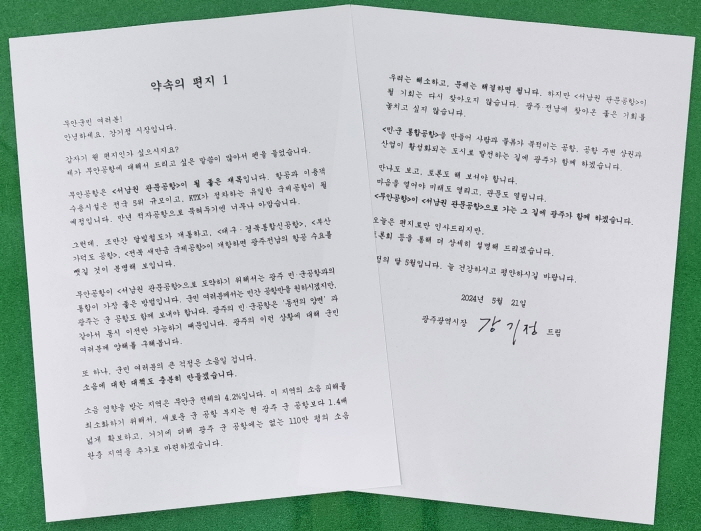 약속의 편지 1
무안군민 여러분!
안녕하세요, 강기정 시장입니다.
갑자기 웬 편지인가 싶으시지요?
제가 무안공항에 대해서 드리고 싶은 말씀이 많아서 펜을 들었습니다.
무안공항은 <서남권 관문공항>이 될 좋은 재목입니다. 항공과 이용객
수용시설은 전국 5위 규모이고, KTX가 정차하는 유일한 국제공항이 될
예정입니다. 만년 적자공항으로 묵혀두기엔 너무나 아깝습니다.
그런데, 조만간 달빛철도가 개통하고, <대구·경북통합신공항>, <부산
가덕도 공항>, <전북 새만금 국제공항>이 개항하면 광주전남의 항공 수요를
뺏길 것이 분명해 보입니다.
무안공항이 <서남권 관문공항>으로 도약하기 위해서는 광주 민·군공항과의
통합이 가장 좋은 방법입니다. 군민 여러분께서는 민간 공항만을 원하시겠지만,
광주는 군 공항도 함께 보내야 합니다. 광주의 민·군공항은 '동전의 양면'과
같아서 동시 이전만 가능하기 때문입니다. 광주의 이런 상황에 대해 군민
여러분께 양해를 구해봅니다.
또 하나, 군민 여러분의 큰 걱정은 소음일 겁니다.
소음에 대한 대책도 충분히 만들겠습니다.
소음 영향을 받는 지역은 무안군 전체의 4.2%입니다. 이 지역의 소음 피해를
최소화하기 위해서, 새로운 군 공항 부지는 현 광주 군 공항보다 1.4배
넓게 확보하고, 거기에 더해 광주 군 공항에는 없는 110만 평의 소음
완충 지역을 추가로 마련하겠습니다.
우려는 해소하고, 문제는 해결하면 됩니다. 하지만 <서남권 관문공항>이
될 기회는 다시 찾아오지 않습니다. 광주 전남에 찾아온 좋은 기회를
놓치고 싶지 않습니다.
<민·군 통합공항>을 만들어 사람과 물류가 북적이는 공항, 공항 주변 상권과
산업이 활성화되는 도시로 발전하는 길에 광주가 함께 하겠습니다.
만나도 보고, 토론도 해 보셔야 합니다.
마음을 열어야 미래도 열리고, 관문도 열립니다.
<무안공항>이 <서남권 관문공항>으로 가는 그 길에 광주가 함께 하겠습니다.
오늘은 편지로만 인사드리지만,
토론회 등을 통해 더 상세히 설명해 드리겠습니다.
정의 달 5월입니다. 늘 건강하시고 평안하시길 바랍니다.
2024년 5월 21일
광주광역시장 강기정 드림